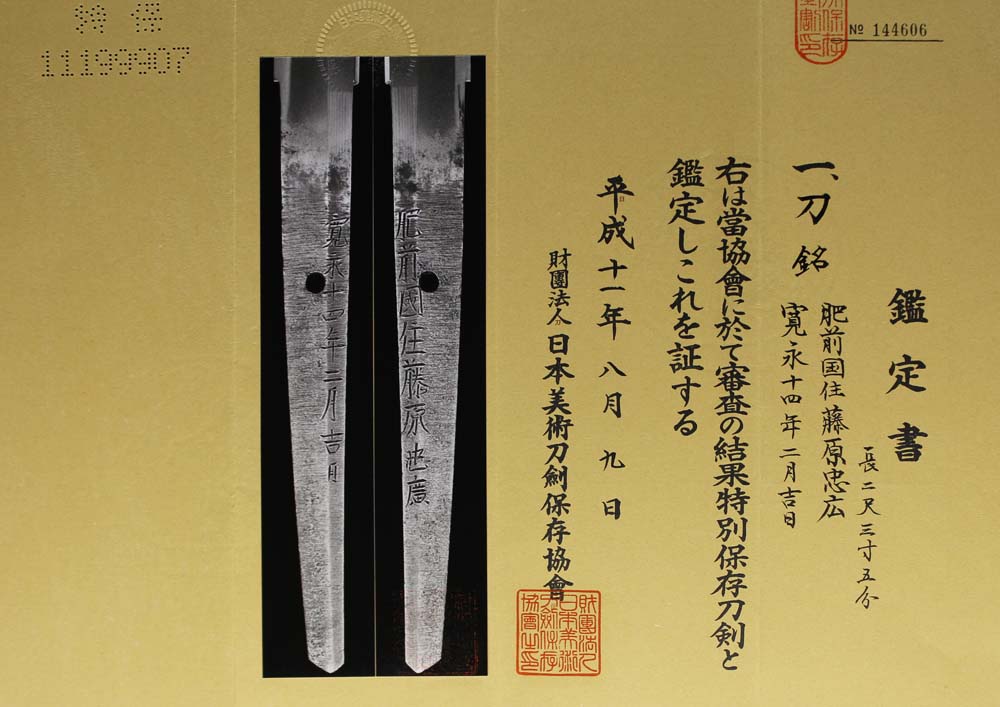 鑑定書
一、刀 銘 肥前国住藤原忠広
寛永十四年二月吉日
長二尺三寸五分
右は當協會に於て審査の結果特別保存刀剣と
鑑定しこれを証する
平成十一年八月九日
財團法人 日本美術刀劍保存協會
財團法人日本美術刀劍保存協會之印
№ 144606
特保
11199907
肥前國住藤原忠廣
寛永十四年二月吉日